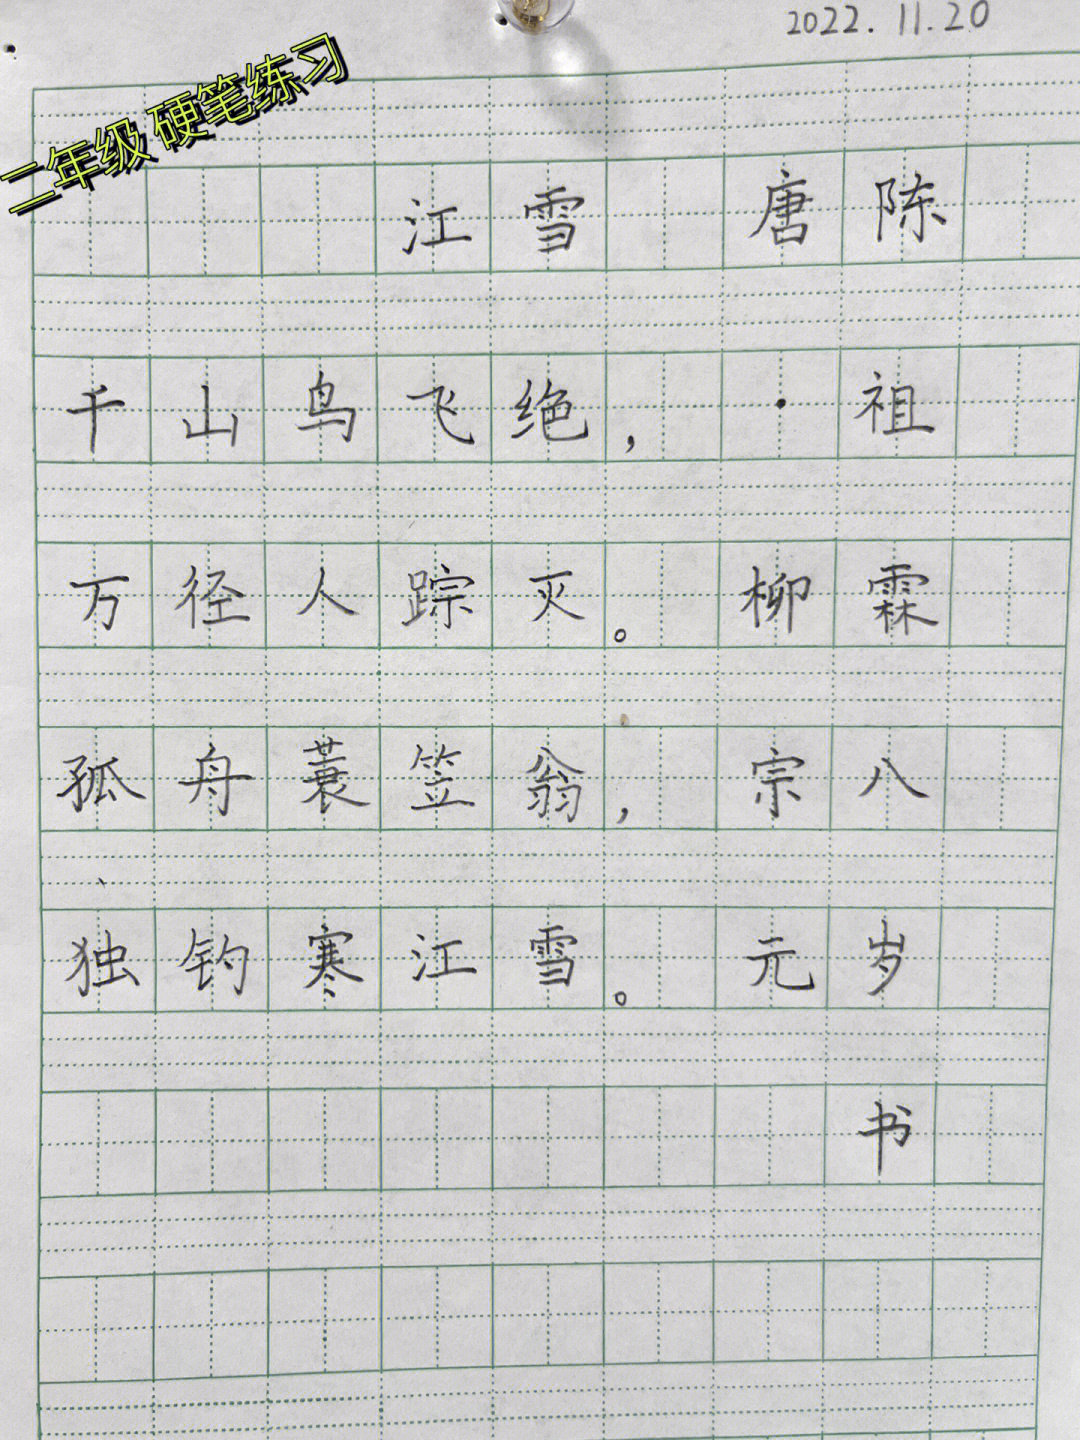 2022.11.20
二年级 硬笔练习
江雪 唐 陈
千山鸟飞绝， · 祖
万径人踪灭。 柳 霖
孤舟蓑笠翁， 宗 八
独钓寒江雪。 元 岁
书